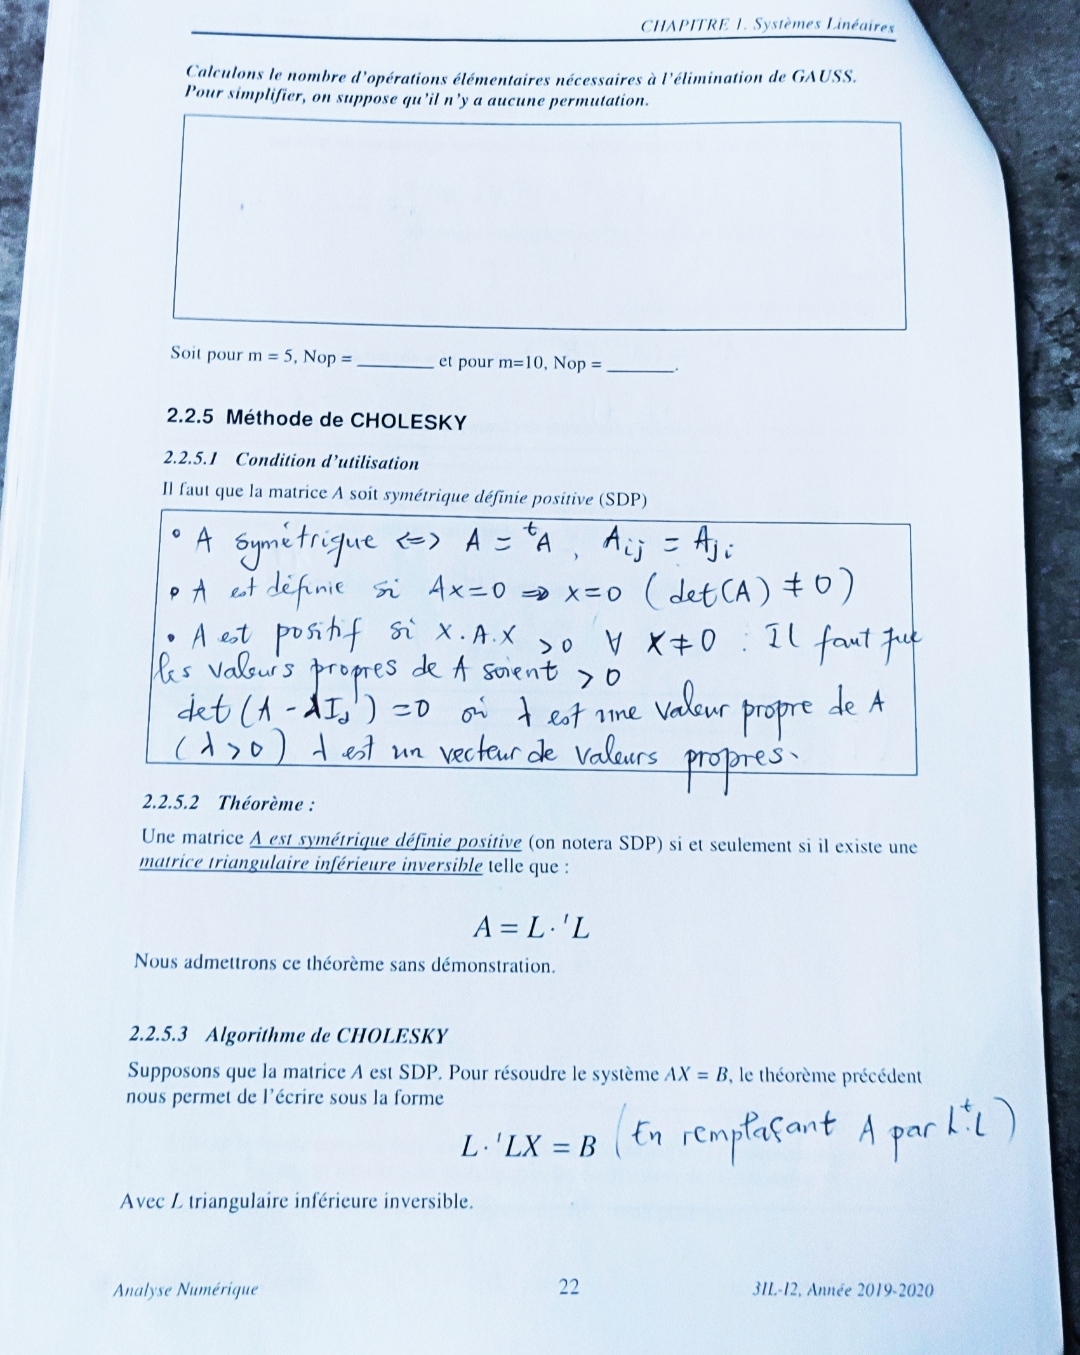 CHAPITRE 1. Systèmes Linéaires
Calculons le nombre d'opérations élémentaires nécessaires à l'élimination de GAUSS.
Pour simplifier, on suppose qu'il n'y a aucune permutation.
Soit pour m = 5, Nop = ________ et pour m=10, Nop = _______.
2.2.5 Méthode de CHOLESKY
2.2.5.1 Condition d'utilisation
Il faut que la matrice A soit symétrique définie positive (SDP)
• A symétrique <=> A = ᵗA , Aij = Aji
• A est définie si Ax=0 => x=0 (det(A) ≠ 0)
• A est positif si X.A.X >0 ∀ X≠0 : Il faut que
les valeurs propres de A soient >0
det (A - λId) = 0 où λ est une valeur propre de A
(λ>0) λ est un vecteur de valeurs propres.
2.2.5.2 Théorème :
Une matrice A est symétrique définie positive (on notera SDP) si et seulement si il existe une
matrice triangulaire inférieure inversible telle que :
A = L·ᵗL
Nous admettrons ce théorème sans démonstration.
2.2.5.3 Algorithme de CHOLESKY
Supposons que la matrice A est SDP. Pour résoudre le système AX = B, le théorème précédent
nous permet de l'écrire sous la forme
L·ᵗLX = B (En remplaçant A par L.ᵗL)
Avec L triangulaire inférieure inversible.
Analyse Numérique 22 3IL-I2, Année 2019-2020